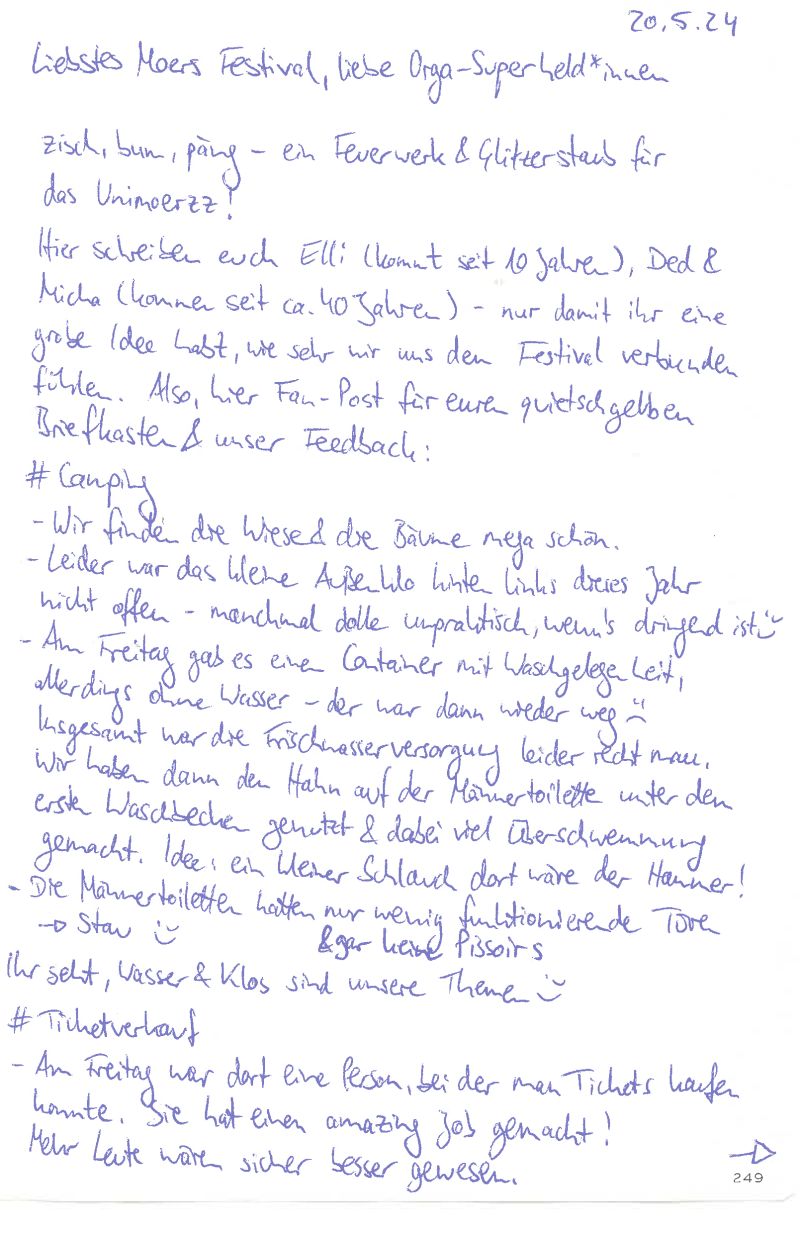 20.5.24
Liebstes Moers Festival, liebe Orga-Superheld*innen
zisch, bum, päng – ein Feuerwerk & Glitzerstaub für
das Unimoerzz!
Hier schreiben euch Elli (kommt seit 10 Jahren), Ded &
Micha (kommen seit ca. 40 Jahren) – nur damit ihr eine
grobe Idee habt, wie sehr wir uns dem Festival verbunden
fühlen. Also, hier Fan-Post für euren quietschgelben
Briefkasten & unser Feedback:
# Camping
- Wir finden die Wiese & die Bäume mega schön.
- Leider war das kleine Außenklo hinten links dieses Jahr
nicht offen – manchmal dolle unpraktisch, wenn's dringend ist :)
- Am Freitag gab es einen Container mit Waschgelegenheit,
allerdings ohne Wasser – der war dann wieder weg :(
Insgesamt war die Frischwasserversorgung leider recht mau.
Wir haben dann den Hahn auf der Männertoilette unter dem
ersten Waschbecken genutzt & dabei viel Überschwemmung
gemacht. Idee: ein kleiner Schlauch dort wäre der Hammer!
- Die Männertoiletten hatten nur wenig funktionierende Türen
& gar keine Pissoirs
→ Stau :)
Ihr seht, Wasser & Klos sind unsere Themen :)
# Ticketverkauf
- Am Freitag war dort eine Person, bei der man Tickets kaufen
konnte. Sie hat einen amazing Job gemacht!
Mehr Leute wären sicher besser gewesen.
→
249